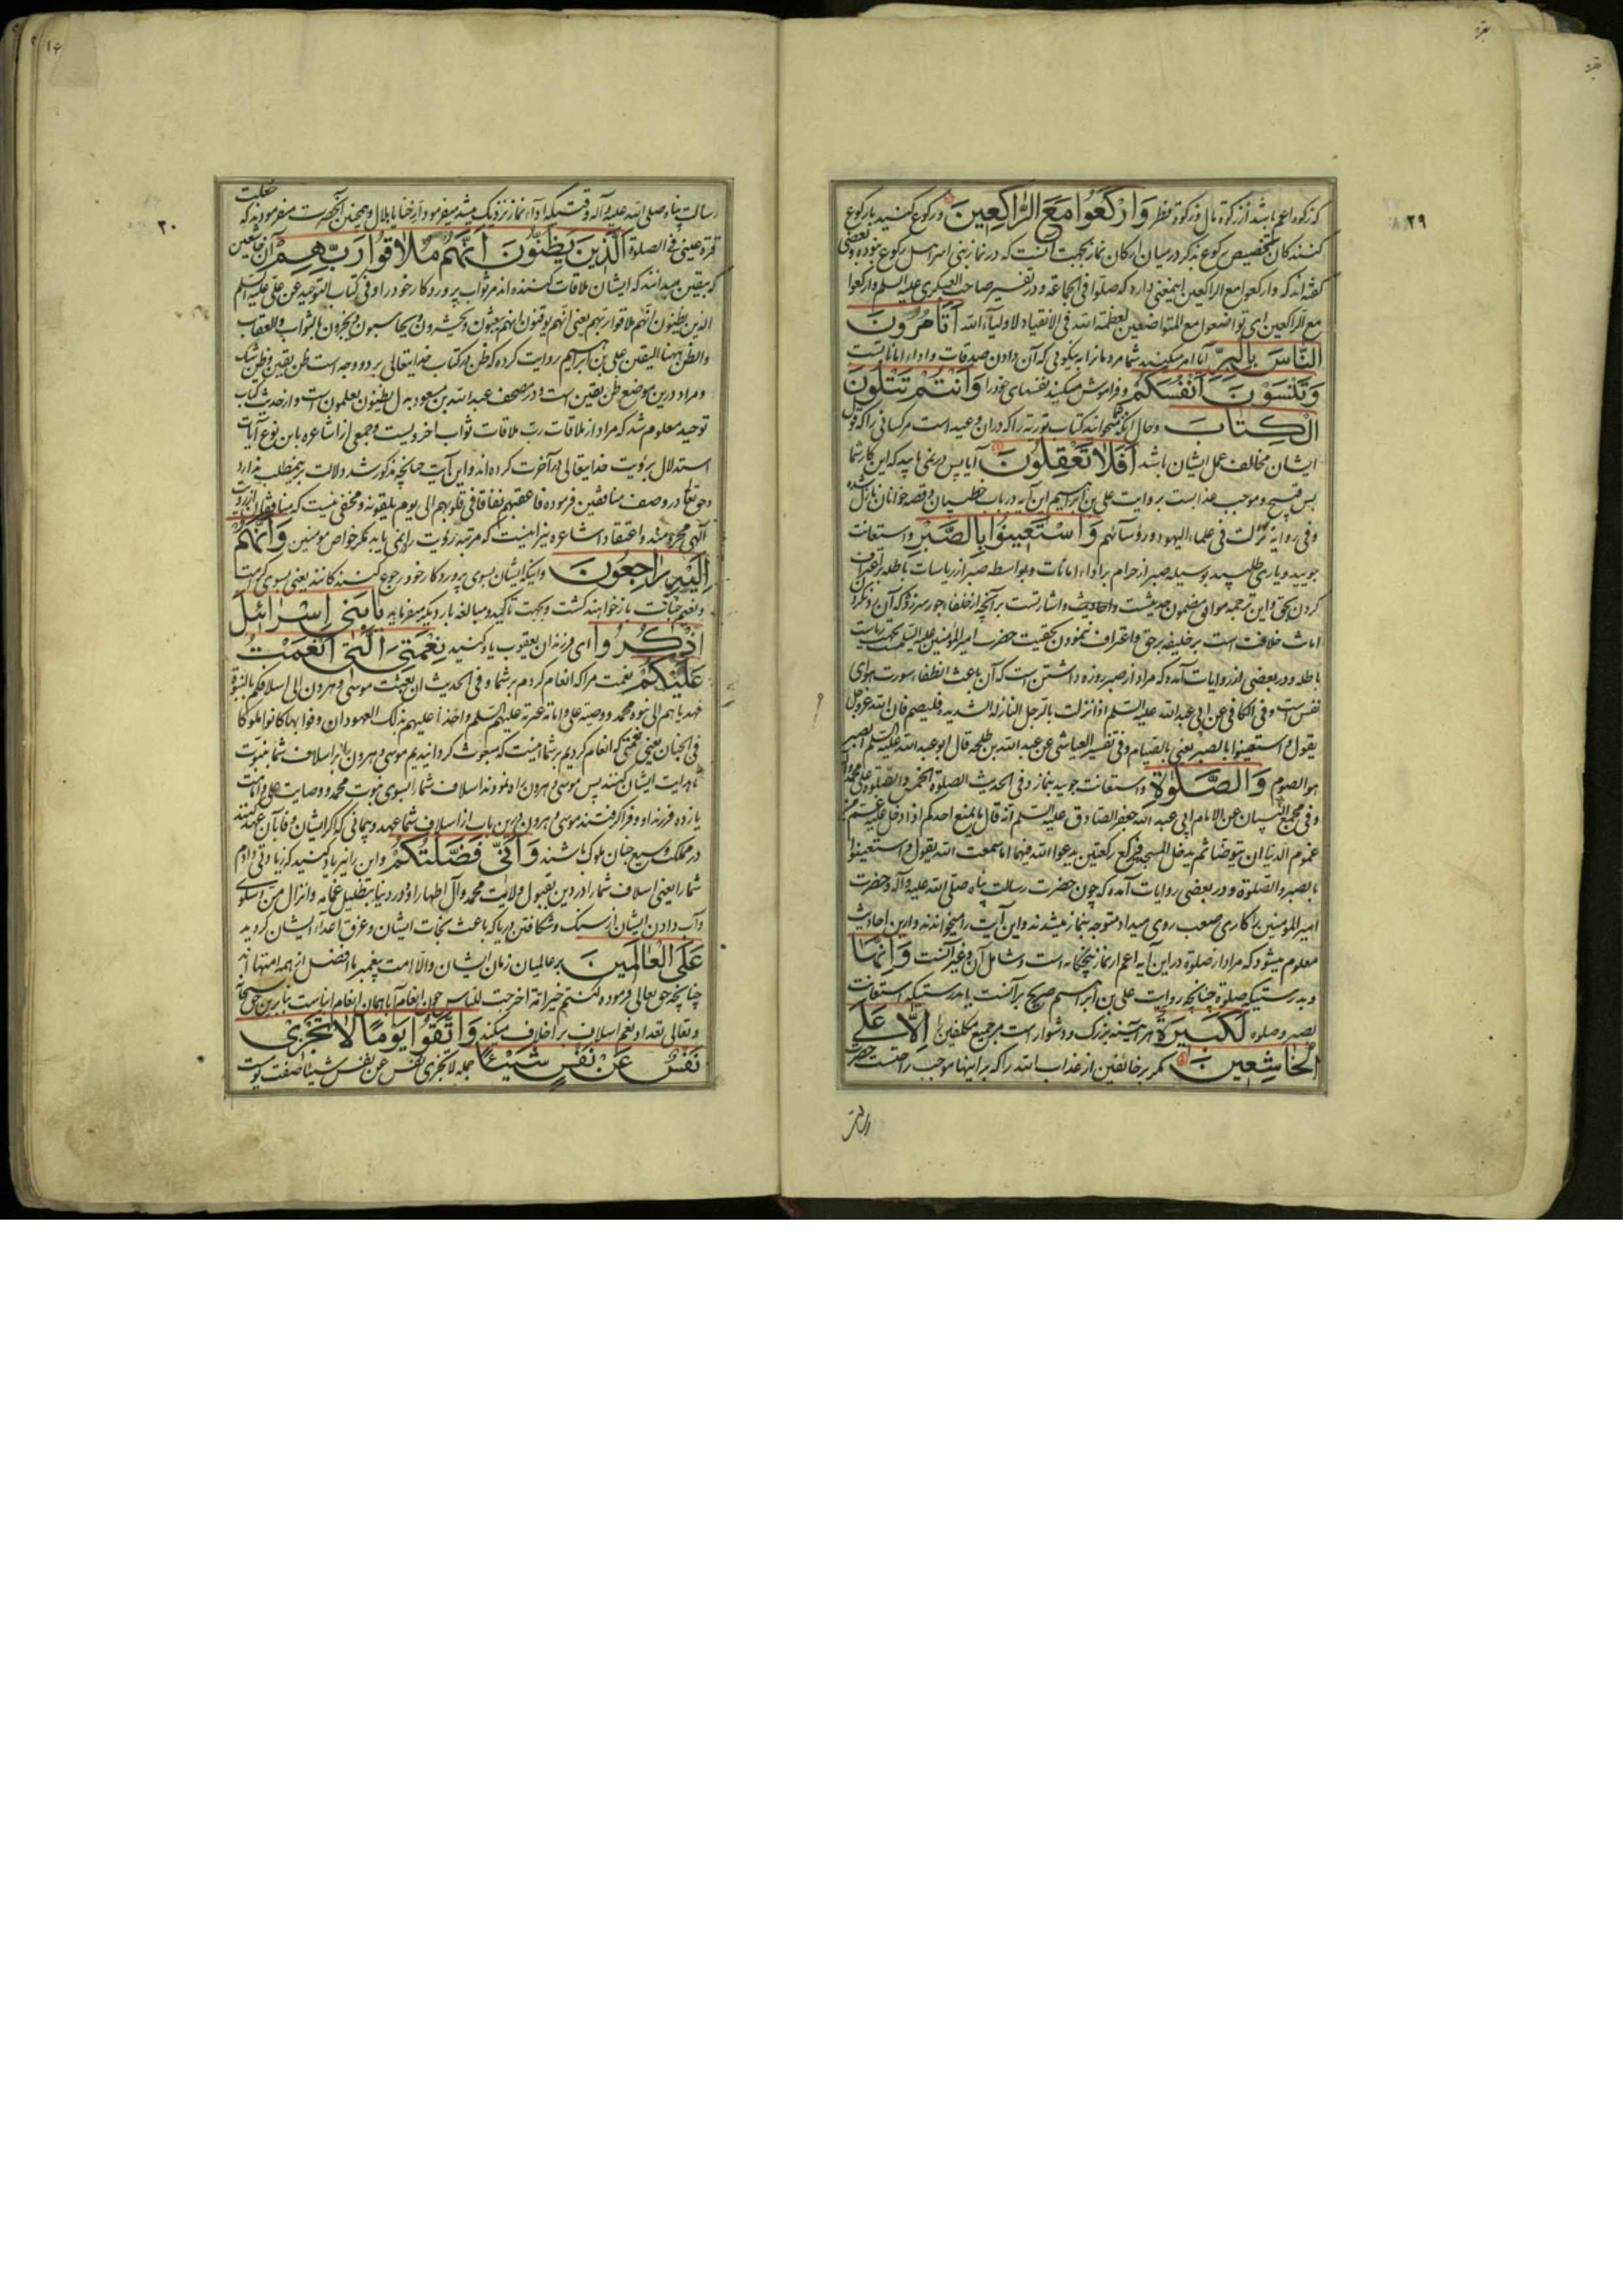 بقره
۲۹
که زکوة اعم باشد از زکوة مال و زکوة فطر وَارْكَعُوا مَعَ الرَّاكِعِينَ و رکوع کنید با رکوع
کنندکان تخصیص رکوع بذکر در میان ارکان نماز بجهت آنست که در نماز بنی اسرائیل رکوع نبوده و بعضی
کفته‌اند که وارکعوا مع الراکعین اینمعنی دارد که صلوا فی الجماعة و در تفسیر صاحب العسکری علیه السلم وارکعوا
مع الراکعین ای تواضعوا مع المتواضعین لعظمة الله فی الانقیاد لاولیاء الله أَتَأْمُرُونَ
النَّاسَ بِالْبِرِّ آیا امر میکنید شما مردمانرا به نیکوئی که آن دادن صدقات و اداء امانات است
وَتَنْسَوْنَ أَنْفُسَكُمْ و فراموش میکنید نفسهای خود را وَأَنْتُمْ تَتْلُونَ
الْكِتَابَ و حال آنکه شما میخوانید کتاب توریة را که در آن وعید است مر کسانی را که قول
ایشان مخالف عمل ایشان باشد أَفَلَا تَعْقِلُونَ آیا پس در نمی یابید که این کار شما
بس قبیح و موجب عذابست بروایت علی بن ابراهیم این آیه در باب خطیبان و قصه خوانان نازل شده
و فی روایة نزلت فی علماء الیهود و رؤسائهم وَاسْتَعِينُوا بِالصَّبْرِ و استعانت
جویید و یاری طلبید بوسیله صبر از حرام بر اداء امانات و بواسطه صبر از ریاسات باطله بر اعتراف
کردن بحق و این ترجمه موافق مضمون حدیثست و احادیث و اشارتست بر آنچه از خلفاء جور سر زد که آن رد نکردن
امانت خلافت است بر خلیفه بر حق و اعتراف ننمودن بحقیت حضرت امیر المؤمنین علیه السلم بجهت ریاست
باطله و در بعضی از روایات آمده که مراد از صبر روزه داشتن است که آن باعث انطفاء سورت هوای
نفس است و فی الکافی عن ابی عبد الله علیه السلم اذا نزلت بالرجل النازلة الشدیدة فلیصم فان الله عز و جل
یقول واستعینوا بالصبر یعنی بالصیام و فی تفسیر العیاشی عن عبد الله بن طلحه قال ابو عبد الله علیه السلم الصبر
هو الصوم وَالصَّلَوٰةِ و استعانت جویید بنماز و فی الحدیث الصلوة الخمس و الصلوة علی محمد و آله
و فی مجمع البیان عن الامام ابی عبد الله جعفر الصادق علیه السلم انه قال ما یمنع احدکم اذا دخل علیه غم من
غموم الدنیا ان یتوضأ ثم یدخل المسجد فیرکع رکعتین یدعوا الله فیهما اما سمعت الله یقول واستعینوا
بالصبر والصلوة و در بعضی روایات آمده که چون حضرت رسالت پناه صلی الله علیه و آله و حضرت
امیر المؤمنین را کاری صعب روی میداد متوجه بنماز میشدند و این آیت را میخواندند و ازین احادیث
معلوم میشود که مراد از صلوة در این آیه اعم از نماز پنجکانه است و شامل آن و غیر آنست وَإِنَّهَا
و بدرستیکه صلوة چنانچه روایت علی بن ابراهیم صریح بر آنست یا بدرستیکه استعانت
بصبر و صلوة لَكَبِيرَةٌ هر آینه بزرک و دشوار است بر جمیع مکلفین إِلَّا عَلَى
الْخَاشِعِينَ مکر بر خائفین از عذاب الله را که بر اینها موجب راحتست حضرت
۱۶
۳۰
رسالت پناه صلی الله علیه و آله وقتیکه اداء نماز نزدیک میشد میفرمود ارحنا یا بلال و همچنین آنحضرت میفرمودند که جعلت
قرة عینی فی الصلوة الَّذِينَ يَظُنُّونَ أَنَّهُمْ مُلَاقُوا رَبِّهِمْ آن خاشعین
که بیقین میدانند که ایشان ملاقات کننده‌اند مر ثواب پروردکار خود را و فی کتاب التوحید عن علی علیه السلم
الذین یظنون انهم ملاقوا ربهم یعنی انهم یوقنون انهم یبعثون و یحشرون و یحاسبون و یجزون بالثواب و العقاب
والظن ههنا الیقین علی بن ابراهیم روایت کرده که ظن در کتاب خدایتعالی بر دو وجه است ظن یقین و ظن شک
و مراد درین موضع ظن یقین است و در مصحف عبد الله بن مسعود بدل یظنون یعلمون است و از حدیث کتاب
توحید معلوم شد که مراد از ملاقات رب ملاقات ثواب اخرویست و جمعی از اشاعره باین نوع آیات
استدلال برؤیت خدایتعالی در آخرت کرده‌اند و این آیت چنانچه مذکور شد دلالت بر این مطلب ندارد
و حق تعالی در وصف منافقین فرموده فاعقبهم نفاقا فی قلوبهم الی یوم یلقونه و مخفی نیست که منافقان از رؤیت
الهی محرومند و اعتقاد اشاعره نیز اینست که مرتبه رؤیت را نمی یابد مکر خواص مؤمنین وَأَنَّهُمْ
إِلَيْهِ رَاجِعُونَ و اینکه ایشان بسوی پروردکار خود رجوع کنندکانند یعنی بسوی کرامت
و نعیم جنات باز خواهند کشت و بجهت تاکید و مبالغه بار دیکر میفرماید يَا بَنِي إِسْرَائِيلَ
اذْكُرُوا ای فرزندان یعقوب یاد کنید نِعْمَتِيَ الَّتِي أَنْعَمْتُ
عَلَيْكُمْ نعمت مرا که انعام کردم بر شما و فی الحدیث ان بعثت موسی و هرون الی اسلافکم بالنبوة
فهدیاهم الی نبوة محمد و وصیة علی و امامة عترته علیهم السلم و اخذا علیهم بذلک العهود ان وفوا بها کانوا ملوکا
فی الجنان یعنی نعمتی که انعام کردیم بر شما اینست که مبعوث کردانیدیم موسی و هرون را بر اسلاف شما بنبوت
تا هدایت ایشان کنند پس موسی و هرون راه نمودند اسلاف شما را بسوی نبوت محمد و وصایت علی و امامت
یازده فرزند او و فرا کرفتند موسی و هرون درین باب از اسلاف شما عهد و پیمانی که اکر ایشان وفا بآن عهد کنند
در مملکت وسیع جنان ملوک باشند وَأَنِّي فَضَّلْتُكُمْ و این را نیز یاد کنید که زیادتی دادم
شما را یعنی اسلاف شما را در دین بقبول ولایت محمد و آل اطهار او و در دنیا بتظلیل غمامه و انزال من و سلوی
و آب دادن ایشان از سنک و شکافتن دریا که باعث نجات ایشان و غرق اعداء ایشان کردید
عَلَى الْعَالَمِينَ بر عالمیان زمان ایشان و الا امت پیغمبر ما افضل از همه امتها اند
چنانچه حق تعالی فرموده کنتم خیر امة اخرجت للناس چون انعام آبا همان انعام ابناست بنابرین حق سبحانه
و تعالی تعداد نعم اسلاف بر اخلاف میکند وَاتَّقُوا يَوْمًا لَا تَجْزِي
نَفْسٌ عَنْ نَفْسٍ شَيْئًا جمله لا تجزی نفس عن نفس شیئا صفت یوم است
رسالت